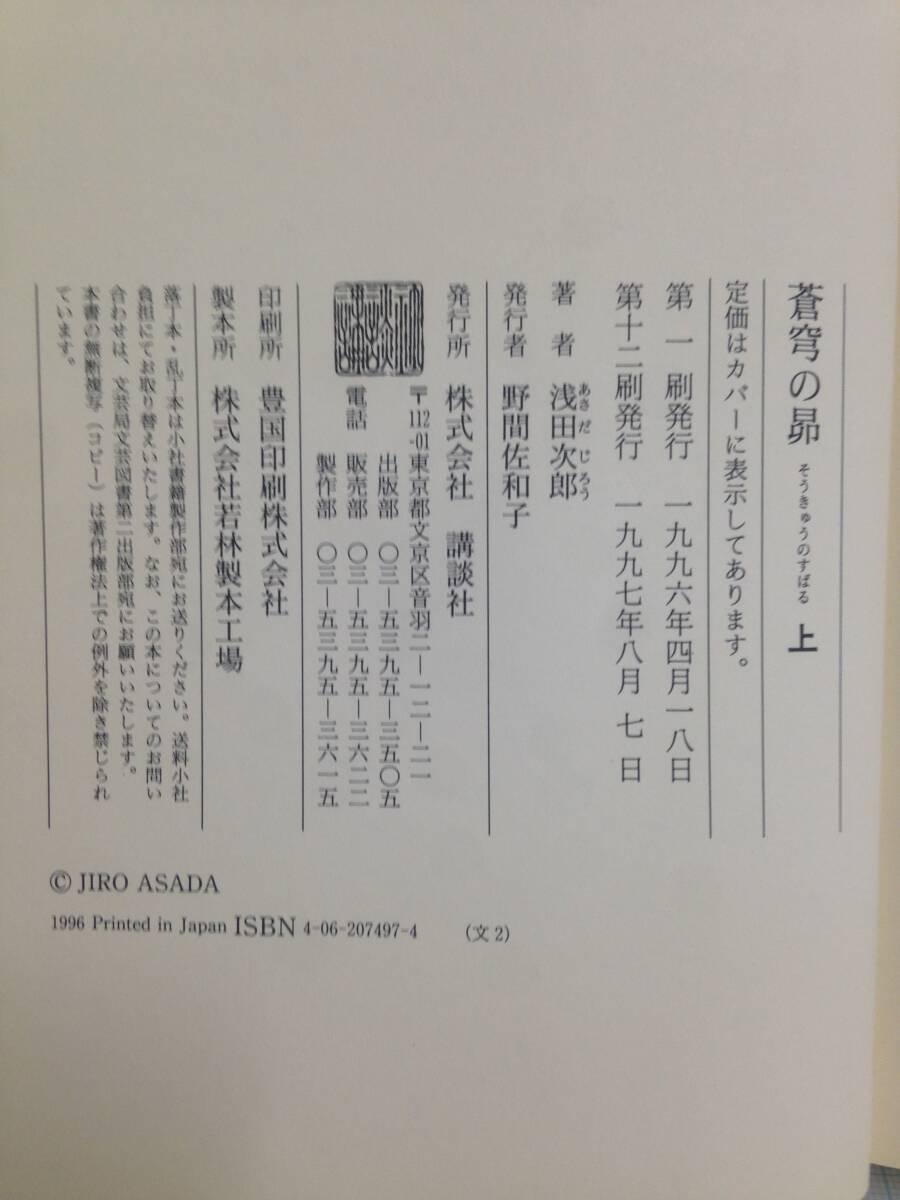 蒼穹の昴 そうきゅうのすばる 上
定価はカバーに表示してあります。
第一刷発行 一九九六年四月一八日
第十二刷発行 一九九七年八月七日
著者 浅田次郎
あさだじろう
発行者 野間佐和子
発行所 株式会社 講談社
〒112-01東京都文京区音羽二―一二―二一
出版部 〇三―五三九五―三五〇五
電話 販売部 〇三―五三九五―三六二二
製作部 〇三―五三九五―三六一五
印刷所 豊国印刷株式会社
製本所 株式会社若林製本工場
落丁本・乱丁本は小社書籍製作部宛にお送りください。送料小社
負担にてお取り替えいたします。なお、この本についてのお問い
合わせは、文芸局文芸図書第二出版部宛にお願いいたします。
本書の無断複写（コピー）は著作権法上での例外を除き禁じられ
ています。
© JIRO ASADA
1996 Printed in Japan ISBN 4-06-207497-4 （文2）